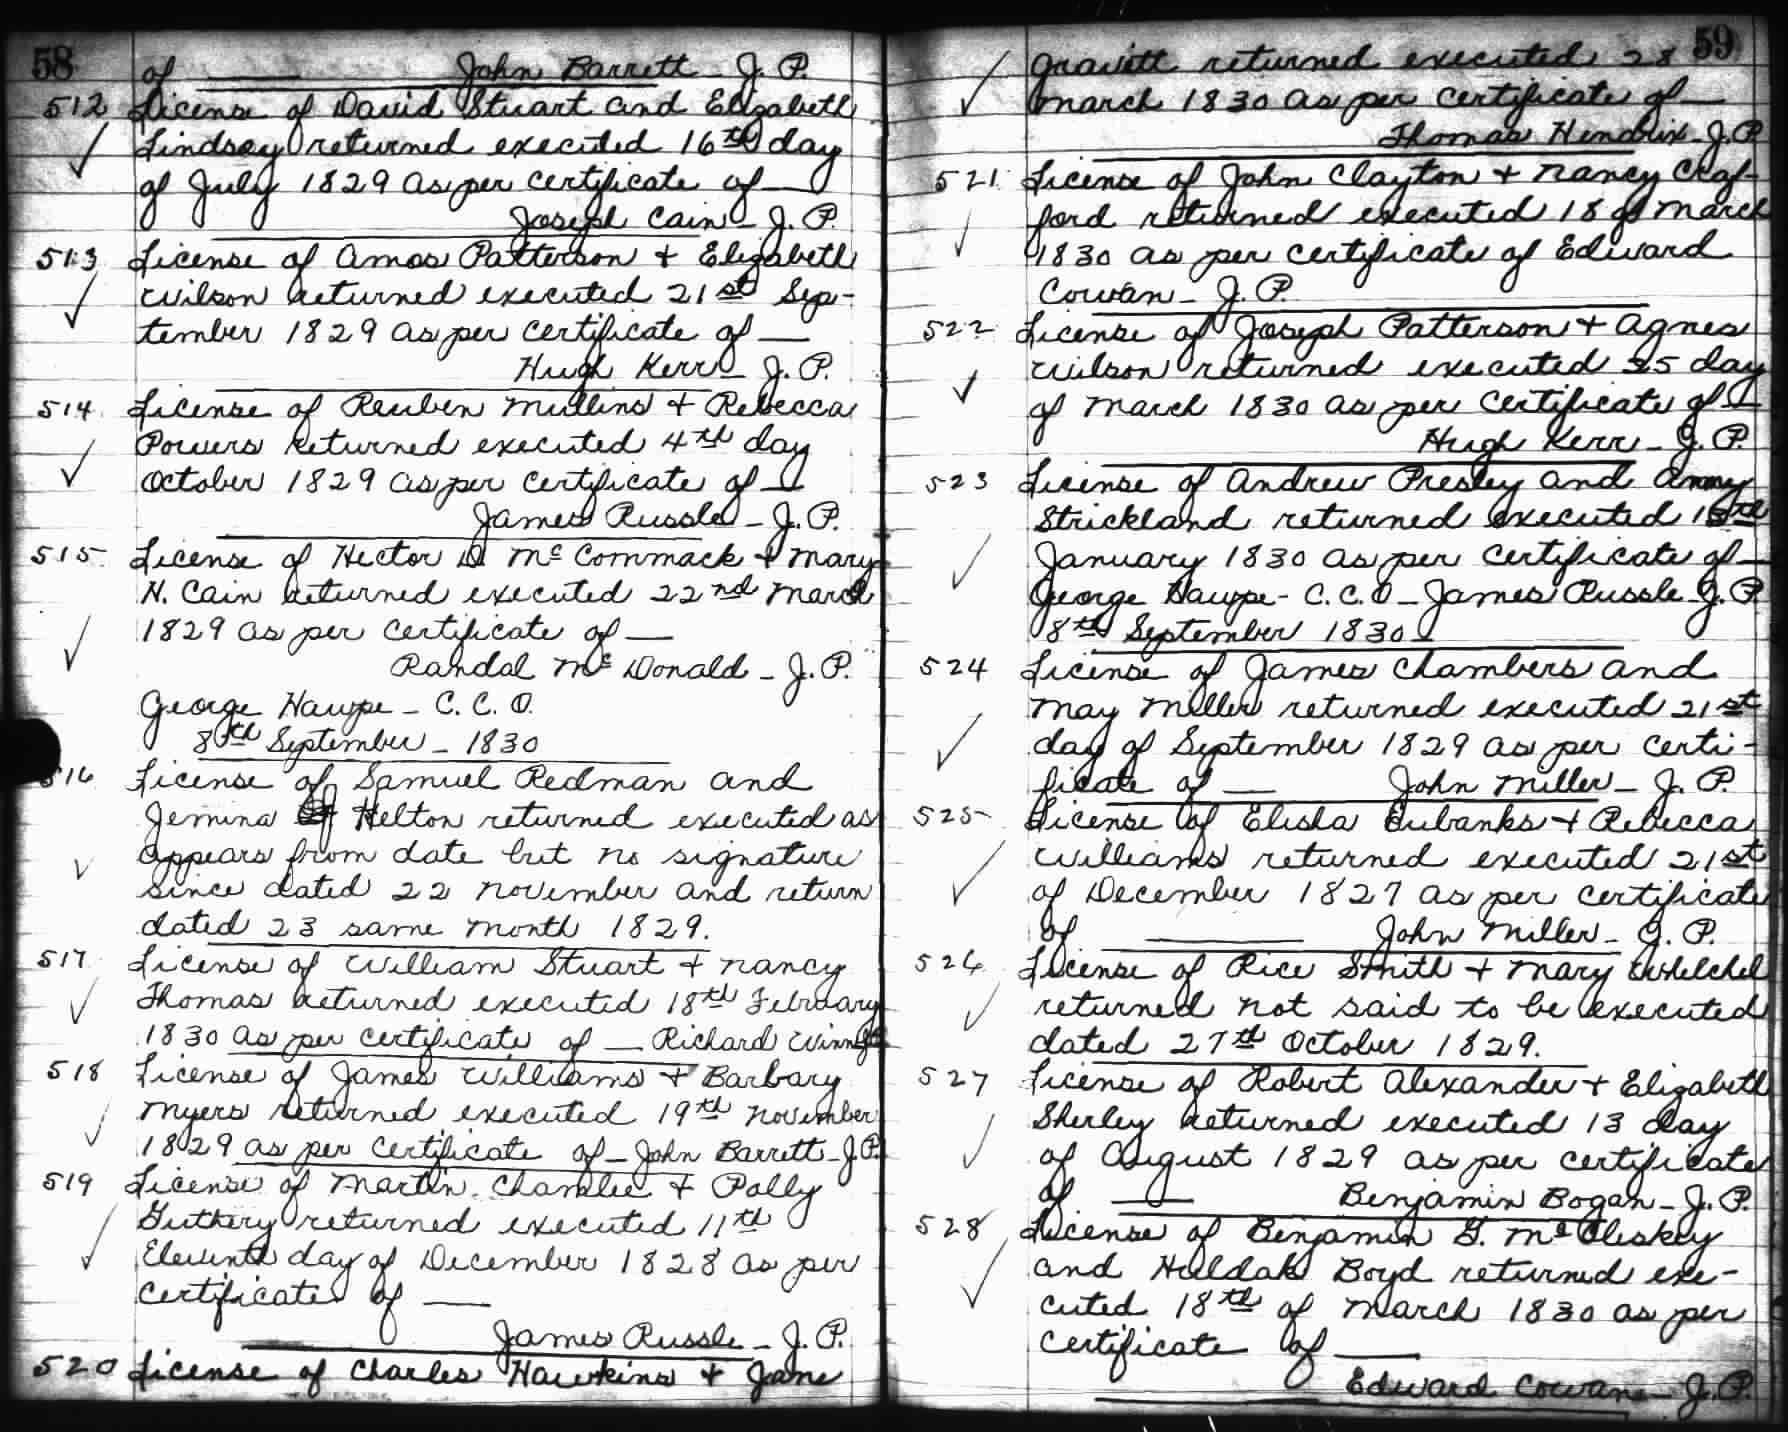 58
of ——— John Barrett - J. P.
512 License of David Stuart and Elizabeth
Lindsey returned executed 16th day
of July 1829 as per certificate of —
Joseph Cain - J. P.
513 License of Amos Patterson + Elizabeth
Wilson returned executed 21st Sep-
tember 1829 as per certificate of —
Hugh Kerr - J. P.
514 License of Reuben Mullins + Rebecca
Powers returned executed 4th day
October 1829 as per certificate of —
James Russle - J. P.
515 License of Hector D McCommack + Mary
H. Cain returned executed 22nd March
1829 as per certificate of —
Randal McDonald - J. P.
George Hawpe - C. C. O.
8th September - 1830
516 License of Samuel Redman and
Jemina Helton returned executed as
appears from date but no signature
since dated 22 November and return
dated 23 same month 1829.
517 License of William Stuart + Nancy
Thomas returned executed 18th February
1830 as per certificate of — Richard
518 License of James Williams + Barbary
Myers returned executed 19th November
1829 as per certificate of - John Barrett - J. P.
519 License of Martin Chamlee + Polly
Guthery returned executed 11th
Eleventh day of December 1828 as per
certificate of —
James Russle - J. P.
520 License of Charles Hawkins + Jane
59
Gravitt returned executed 28
March 1830 as per certificate of —
Thomas Hendrix - J. P.
521 License of John Clayton + Nancy Craf-
ford returned executed 18 of March
1830 as per certificate of Edward
Cowan - J. P.
522 License of Joseph Patterson + Agnes
Wilson returned executed 25 day
of March 1830 as per certificate of —
Hugh Kerr - J. P.
523 License of Andrew Presley and
Strickland returned executed
January 1830 as per certificate of —
George Hawpe - C. C. O - James Russle - J. P.
8th September 1830 -
524 License of James Chambers and
May Miller returned executed 21st
day of September 1829 as per certi-
ficate of — John Miller - J. P.
525 License of Elisha Eubanks + Rebecca
Williams returned executed 21st
of December 1827 as per certificate
of ——— John Miller - J. P.
526 License of Rice Smith + Mary Whelchel
returned not said to be executed
dated 27th October 1829.
527 License of Robert Alexander + Elizabeth
Sherley returned executed 13 day
of August 1829 as per certificate
of —— Benjamin Bogan - J. P.
528 License of Benjamin G. McCleskey
and Huldah Boyd returned exe-
cuted 18th of March 1830 as per
certificate of ——
Edward Cowan - J. P.